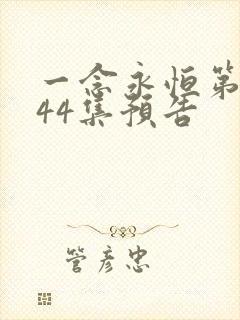 一念永恒第
44集預告
管彦忠